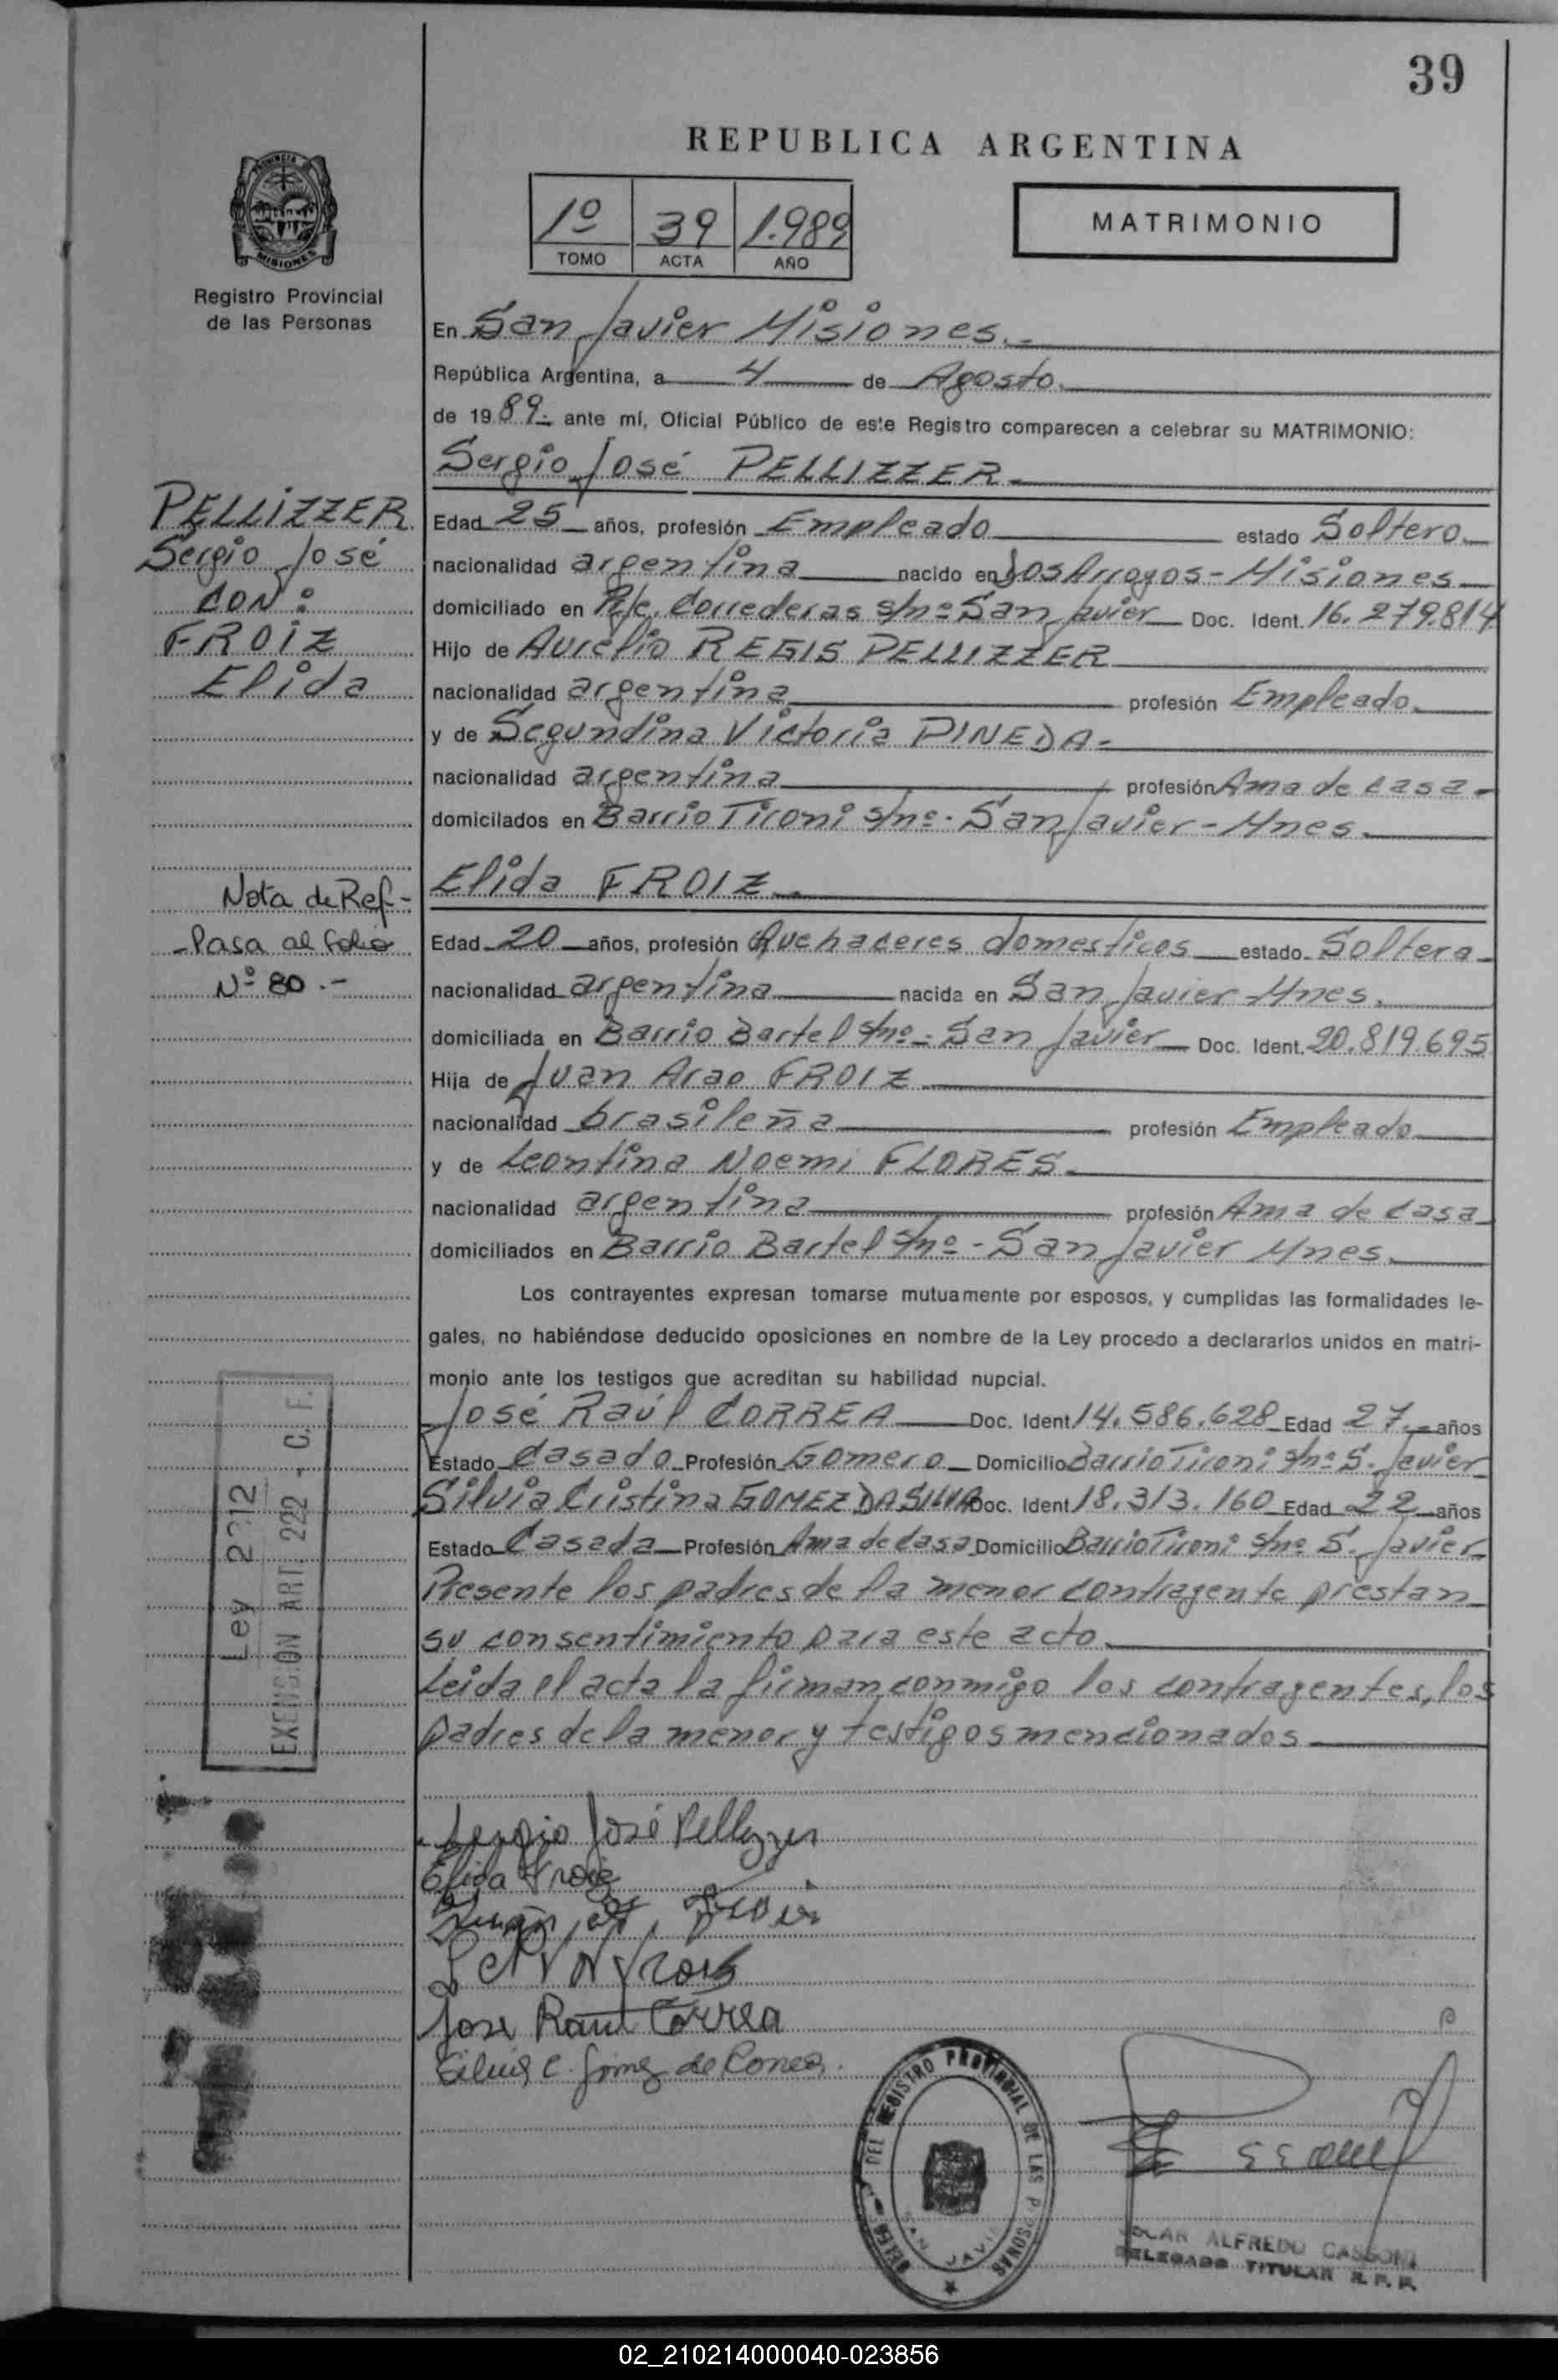 39
REPUBLICA ARGENTINA
1º 39 1.989
TOMO ACTA AÑO
MATRIMONIO
PROVINCIA
MISIONES
Registro Provincial
de las Personas
En San Javier Misiones.-
República Argentina, a 4 de Agosto.
de 1989.- ante mí, Oficial Público de este Registro comparecen a celebrar su MATRIMONIO:
Sergio José PELLIZZER.
PELLIZZER
Sergio José
CON:
FROIZ
Elida
Edad 25 años, profesión Empleado estado Soltero.
nacionalidad argentina nacido en Dos Arroyos - Misiones
domiciliado en Pje. Correderas s/nº San Javier Doc. Ident. 16.279.814
Hijo de Aurelio REGIS PELLIZZER
nacionalidad argentina profesión Empleado.
y de Segundina Victoria PINEDA-
nacionalidad argentina profesión Ama de casa.
domicilados en Barrio Tironi s/nº- San Javier - Mnes.
Elida FROIZ.
Nota de Ref-
- Pasa al folio
Nº 80.-
Edad 20 años, profesión Quehaceres domesticos estado Soltera
nacionalidad argentina nacida en San Javier Mnes.
domiciliada en Barrio Bartel s/nº- San Javier Doc. Ident. 20.819.695
Hija de Juan Arao FROIZ
nacionalidad brasileña profesión Empleado
y de Leontina Noemi FLORES.
nacionalidad argentina profesión Ama de casa
domiciliados en Barrio Bartel s/nº- San Javier Mnes.
Los contrayentes expresan tomarse mutuamente por esposos, y cumplidas las formalidades le-
gales, no habiéndose deducido oposiciones en nombre de la Ley procedo a declararlos unidos en matri-
monio ante los testigos que acreditan su habilidad nupcial.
José Raúl CORREA Doc. Ident 14.586.628 Edad 27.- años
Estado Casado Profesión Gomero Domicilio Barrio Tironi s/nº S. Javier
Silvia Cristina GOMEZ DA SILVA Doc. Ident 18.313.160 Edad 22 años
Estado Casada Profesión Ama de casa Domicilio Barrio Tironi s/nº S. Javier
Presente los padres de la menor contrayente prestan
su consentimiento para este acto.
Leida el acta la firman conmigo los contrayentes, los
padres de la menor y testigos mencionados
Ley 2212
EXENSION ART. 222 - C. F.
Sergio José Pellizzer
Elida Froiz
Juan Froiz
Jose Raul Correa
Silvia C. Gomez de Correa.
DEL REGISTRO PROVINCIAL DE LAS PERSONAS
SAN JAVIER
OSCAR ALFREDO CASSONI
DELEGADO TITULAR R. P. P.
02_210214000040-023856